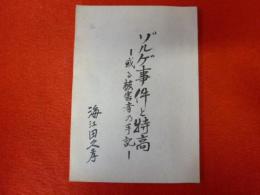 ゾルゲ事件と特高
ー或る被害者の手記ー
海江田久孝